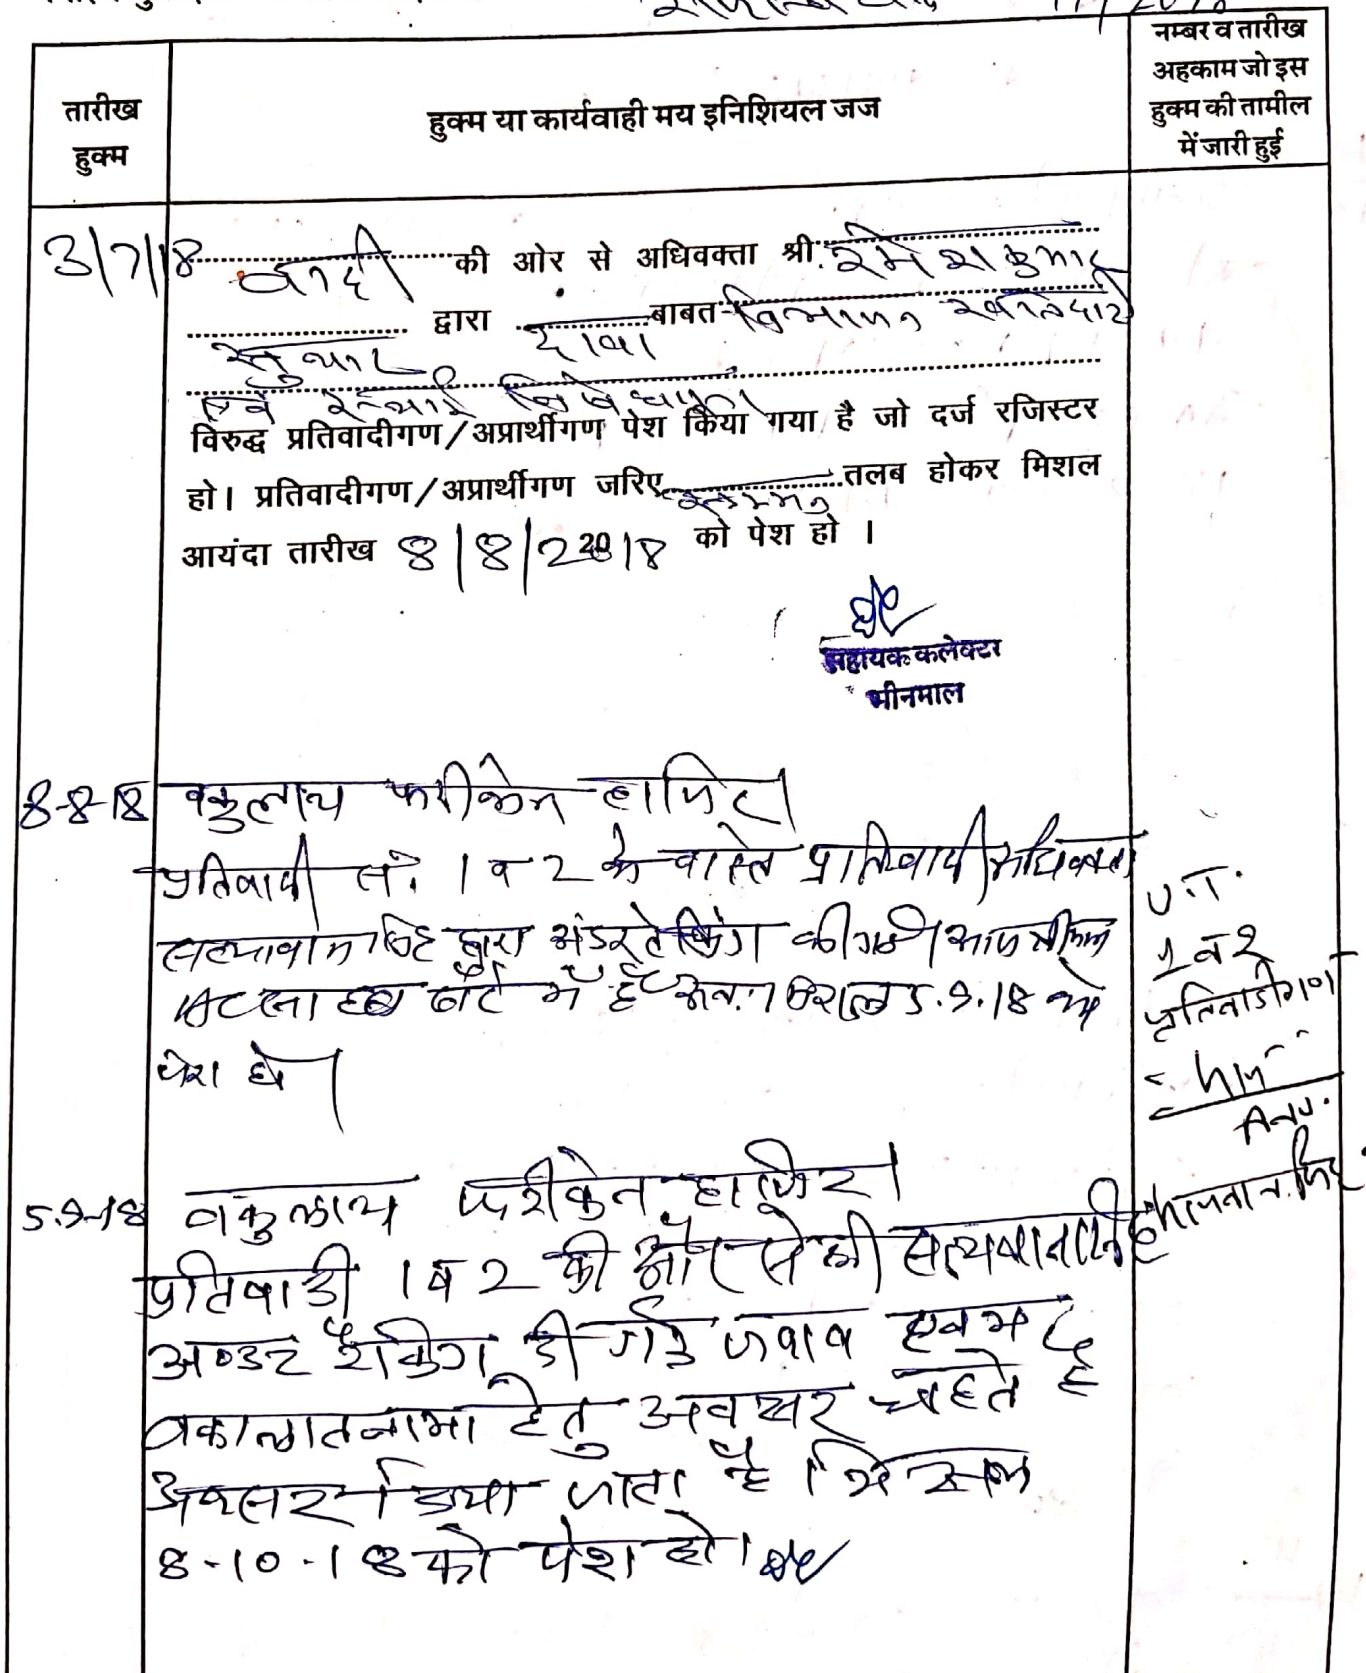 तारीख
हुक्म
हुक्म या कार्यवाही मय इनिशियल जज
नम्बर व तारीख
अहकाम जो इस
हुक्म की तामील
में जारी हुई
3/7/18 वादी की ओर से अधिवक्ता श्री रमेश कुमार
द्वारा बाबत विभाजन खातेदारी
सुथार दावा
एवं स्थाई निषेधाज्ञा
विरुद्ध प्रतिवादीगण/अप्रार्थीगण पेश किया गया है जो दर्ज रजिस्टर
हो। प्रतिवादीगण/अप्रार्थीगण जरिए सम्मन तलब होकर मिशल
आयंदा तारीख 8/8/2018 को पेश हो ।
सहायक कलेक्टर
भीनमाल
8-8-18 वकुलाय फरीकेन हाजिर।
प्रतिवादी सं. 1 व 2 के वास्ते प्रतिवादी अधिवक्ता
द्वारा अंडरटेकिंग की गई।
में है 5.9.18 को
पेश हो।
U.T.
1 व 2
प्रतिवादीगण
Adv.
5.9-18 वकुलाय फरीकेन हाजिर।
प्रतिवादी 1 व 2 की ओर से श्री सत्यवानसिंह
अण्डर टेकिंग दी गई जवाब
वकालातनामा हेतु अवसर चाहते है
अवसर दिया जाता है। मिसल
8-10-18 को पेश हो।